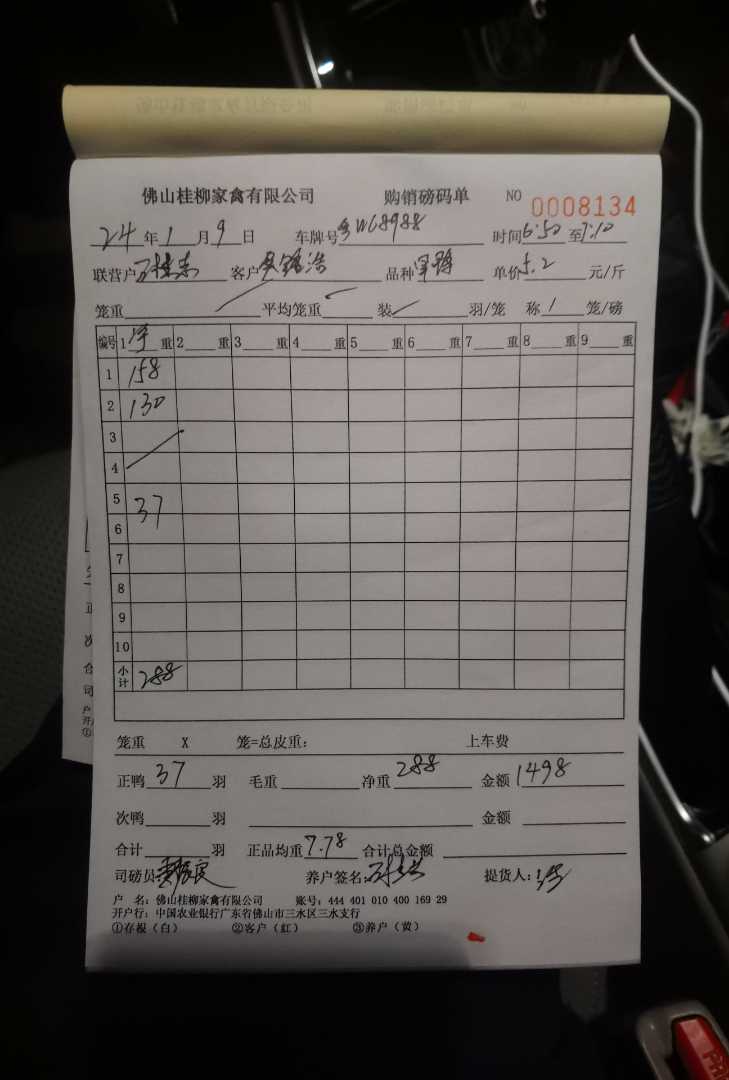 佛山桂柳家禽有限公司 购销磅码单 NO 0008134
24年1月9日 车牌号粤W68988 时间6:50至7:10
联营户 客户 浩 品种 单价5.2元/斤
笼重 平均笼重 装 羽/笼 称1笼/磅
编号 1净重 2重 3重 4重 5重 6重 7重 8重 9重
1 158
2 130
3
4
5 37
6
7
8
9
10
小计 288
笼重 X 笼=总皮重: 上车费
正鸭37羽 毛重 净重288 金额1498
次鸭 羽 金额
合计 羽 正品均重7.78 合计总金额
司磅员: 养户签名: 提货人:
户 名: 佛山桂柳家禽有限公司 账号: 444 401 010 400 169 29
开户行: 中国农业银行广东省佛山市三水区三水支行
①存根(白) ②客户(红) ③养户(黄)